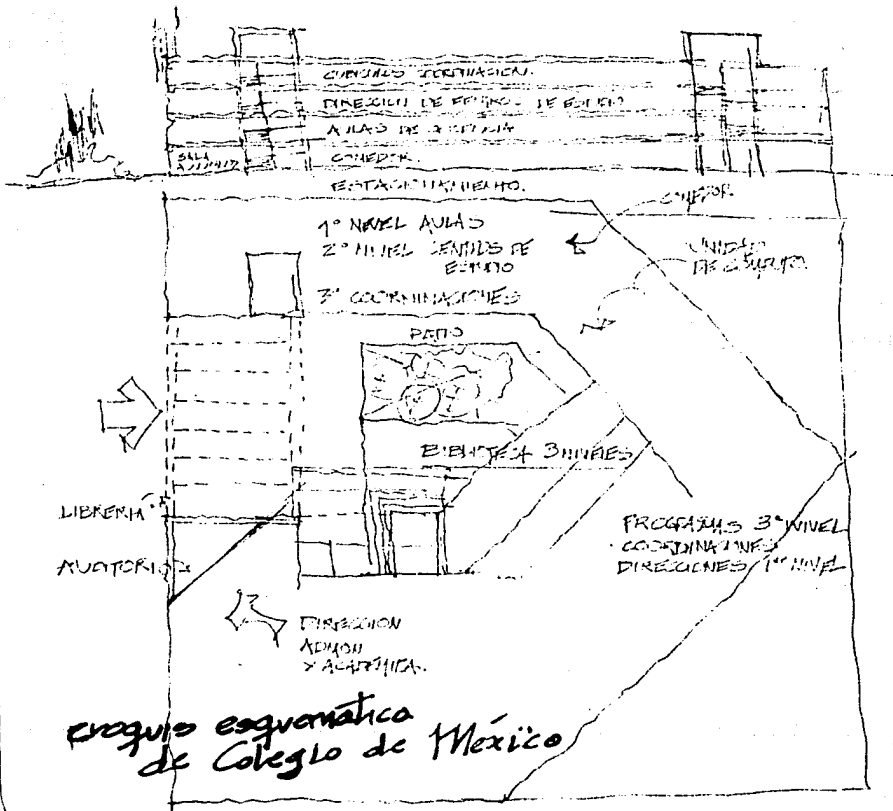 CUBICULOS COORDINACION.
DIRECCION DE CENTROS DE ESTUDIO
AULAS DE DOCENCIA
SALA
COMEDOR.
ESTACIONAMIENTO.
COMEDOR.
1º NIVEL AULAS
2º NIVEL CENTROS DE
ESTUDIO
UNIDAD
DE COMPUTO.
3º COORDINACIONES
PATIO
BIBLIOTECA 3 NIVELES
LIBRERIA
AUDITORIO
PROGRAMAS 3º NIVEL
COORDINACIONES
DIRECCIONES 1er NIVEL
DIRECCION
ADMON
Y ACADEMICA.
croquis esquemático
de Colegio de México